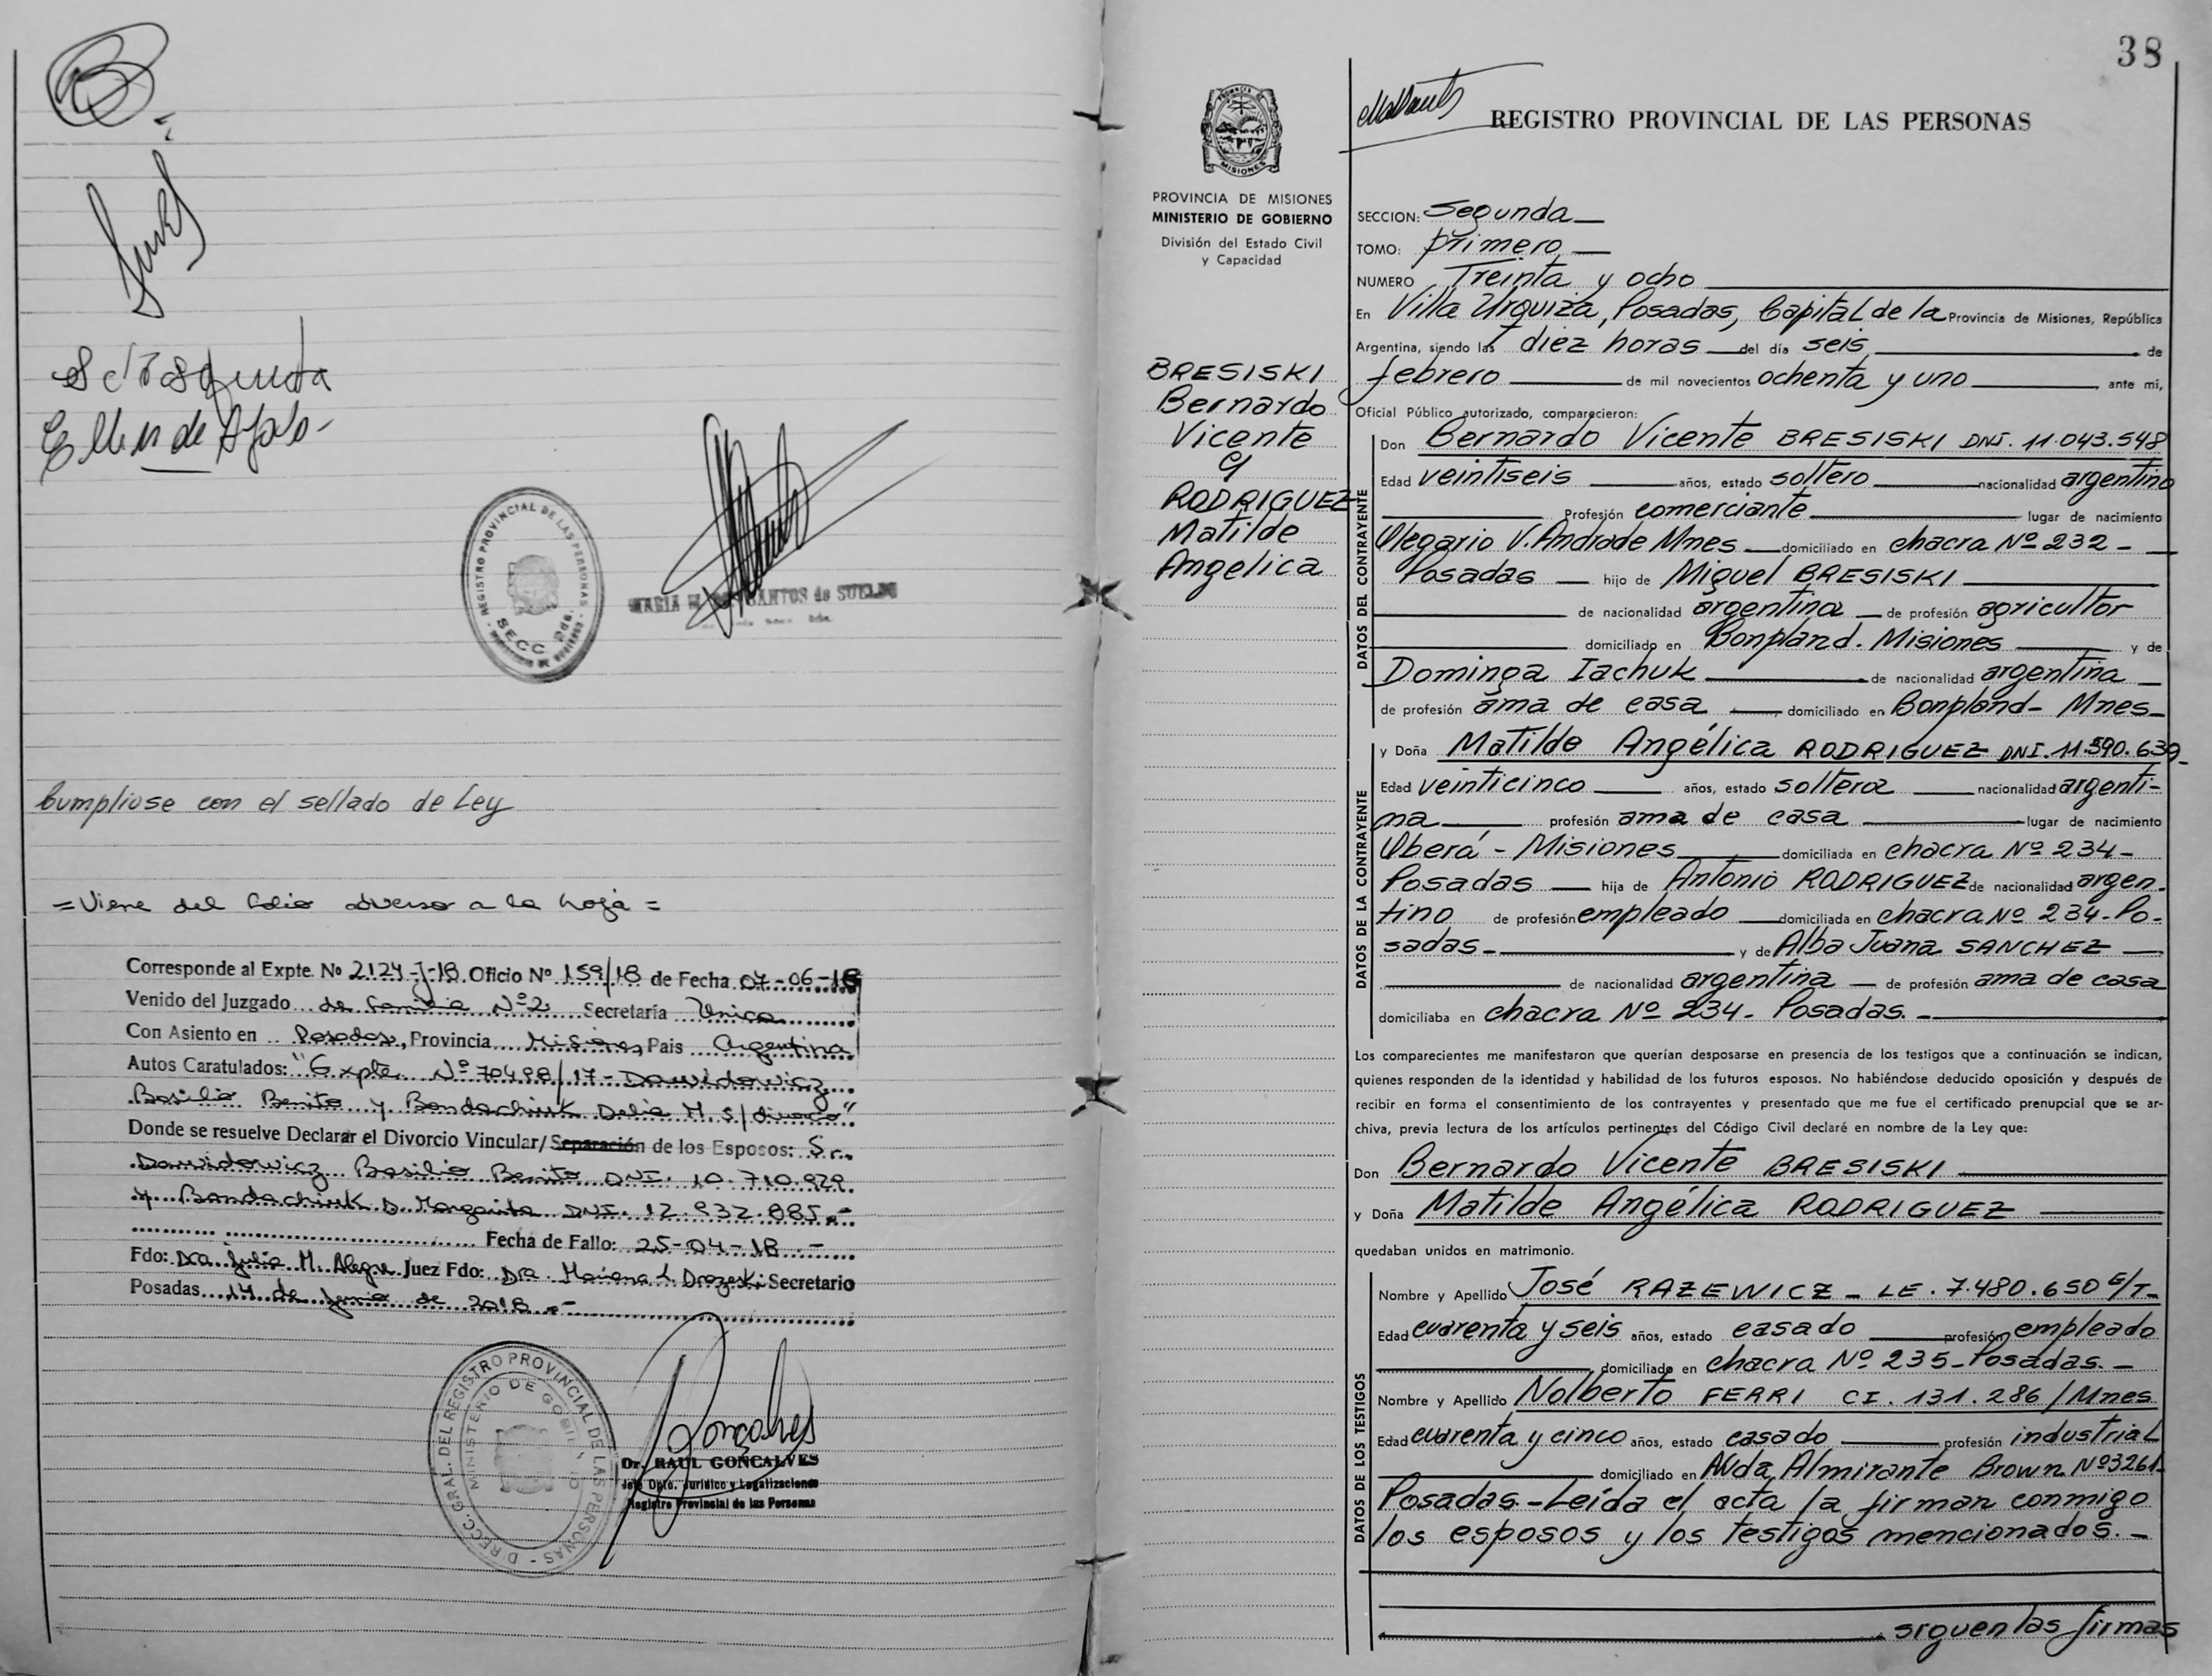 Cumpliose con el sellado de Ley
= Viene del folio adverso a la hoja =
Corresponde al Expte. Nº 2124-J-18. Oficio Nº 159/18 de Fecha 07-06-18
Venido del Juzgado de Familia Nº 2 Secretaría Unica
Con Asiento en Posadas, Provincia Misiones, Pais Argentina
Autos Caratulados: "Expte. Nº 70498/17 - Dawidowicz
Basilio Benito y Bondachiuk Delia M. s/ divorcio"
Donde se resuelve Declarar el Divorcio Vincular/Separación de los Esposos: Sr.
Dawidowicz Basilio Benito DNI. 10.710.929
y Bondachiuk D. Margarita DNI. 12.932.885.-
Fecha de Fallo: 25-04-18.-
Fdo: Dra Julia M. Alegre Juez Fdo: Dra. Mariana L. Drozeski Secretario
Posadas 14 de Junio de 2018.-
REGISTRO PROVINCIAL DE LAS PERSONAS
SECC. 2da.
MARIA M. DOS SANTOS de SUELDO
DIRECC. GRAL. DEL REGISTRO PROVINCIAL DE LAS PERSONAS
MINISTERIO DE GOBIERNO
Dr. RAUL GONCALVES
Jefe Dpto. Jurídico y Legalizaciones
Registro Provincial de las Personas
38
REGISTRO PROVINCIAL DE LAS PERSONAS
MISIONES
PROVINCIA DE MISIONES
MINISTERIO DE GOBIERNO
División del Estado Civil
y Capacidad
BRESISKI
Bernardo
Vicente
y
RODRIGUEZ
Matilde
Angelica
SECCION: Segunda
TOMO: primero
NUMERO Treinta y ocho
En Villa Urquiza, Posadas, Capital de la Provincia de Misiones, República
Argentina, siendo las diez horas del día seis de
febrero de mil novecientos ochenta y uno ante mi,
Oficial Público autorizado, comparecieron:
DATOS DEL CONTRAYENTE
Don Bernardo Vicente BRESISKI DNI. 11.043.548
Edad veintiseis años, estado soltero nacionalidad argentino
Profesión comerciante lugar de nacimiento
Olegario V. Andrade Mnes domiciliado en chacra Nº 232-
Posadas hijo de Miguel BRESISKI
de nacionalidad argentina de profesión agricultor
domiciliado en Bonpland. Misiones y de
Dominga Iachuk de nacionalidad argentina
de profesión ama de casa domiciliado en Bonpland- Mnes
DATOS DE LA CONTRAYENTE
y Doña Matilde Angélica RODRIGUEZ DNI. 11.590.639
Edad veinticinco años, estado soltera nacionalidad argenti-
na profesión ama de casa lugar de nacimiento
Oberá - Misiones domiciliada en chacra Nº 234-
Posadas hija de Antonio RODRIGUEZ de nacionalidad argen-
tino de profesión empleado domiciliada en chacra Nº 234-Po-
sadas- y de Alba Juana SANCHEZ
de nacionalidad argentina de profesión ama de casa
domiciliaba en chacra Nº 234- Posadas.-
Los comparecientes me manifestaron que querían desposarse en presencia de los testigos que a continuación se indican,
quienes responden de la identidad y habilidad de los futuros esposos. No habiéndose deducido oposición y después de
recibir en forma el consentimiento de los contrayentes y presentado que me fue el certificado prenupcial que se ar-
chiva, previa lectura de los artículos pertinentes del Código Civil declaré en nombre de la Ley que:
Don Bernardo Vicente BRESISKI
y Doña Matilde Angélica RODRIGUEZ
quedaban unidos en matrimonio.
DATOS DE LOS TESTIGOS
Nombre y Apellido José RAZEWICZ - LE. 7.480.650 E/T-
Edad cuarenta y seis años, estado casado profesión empleado
domiciliado en chacra Nº 235-Posadas.-
Nombre y Apellido Nolberto FERRI CI. 131.286/Mnes
Edad cuarenta y cinco años, estado casado profesión industrial
domiciliado en Avda, Almirante Brown Nº3261-
Posadas.-Leída el acta la firman conmigo
los esposos y los testigos mencionados.-
siguen las firmas